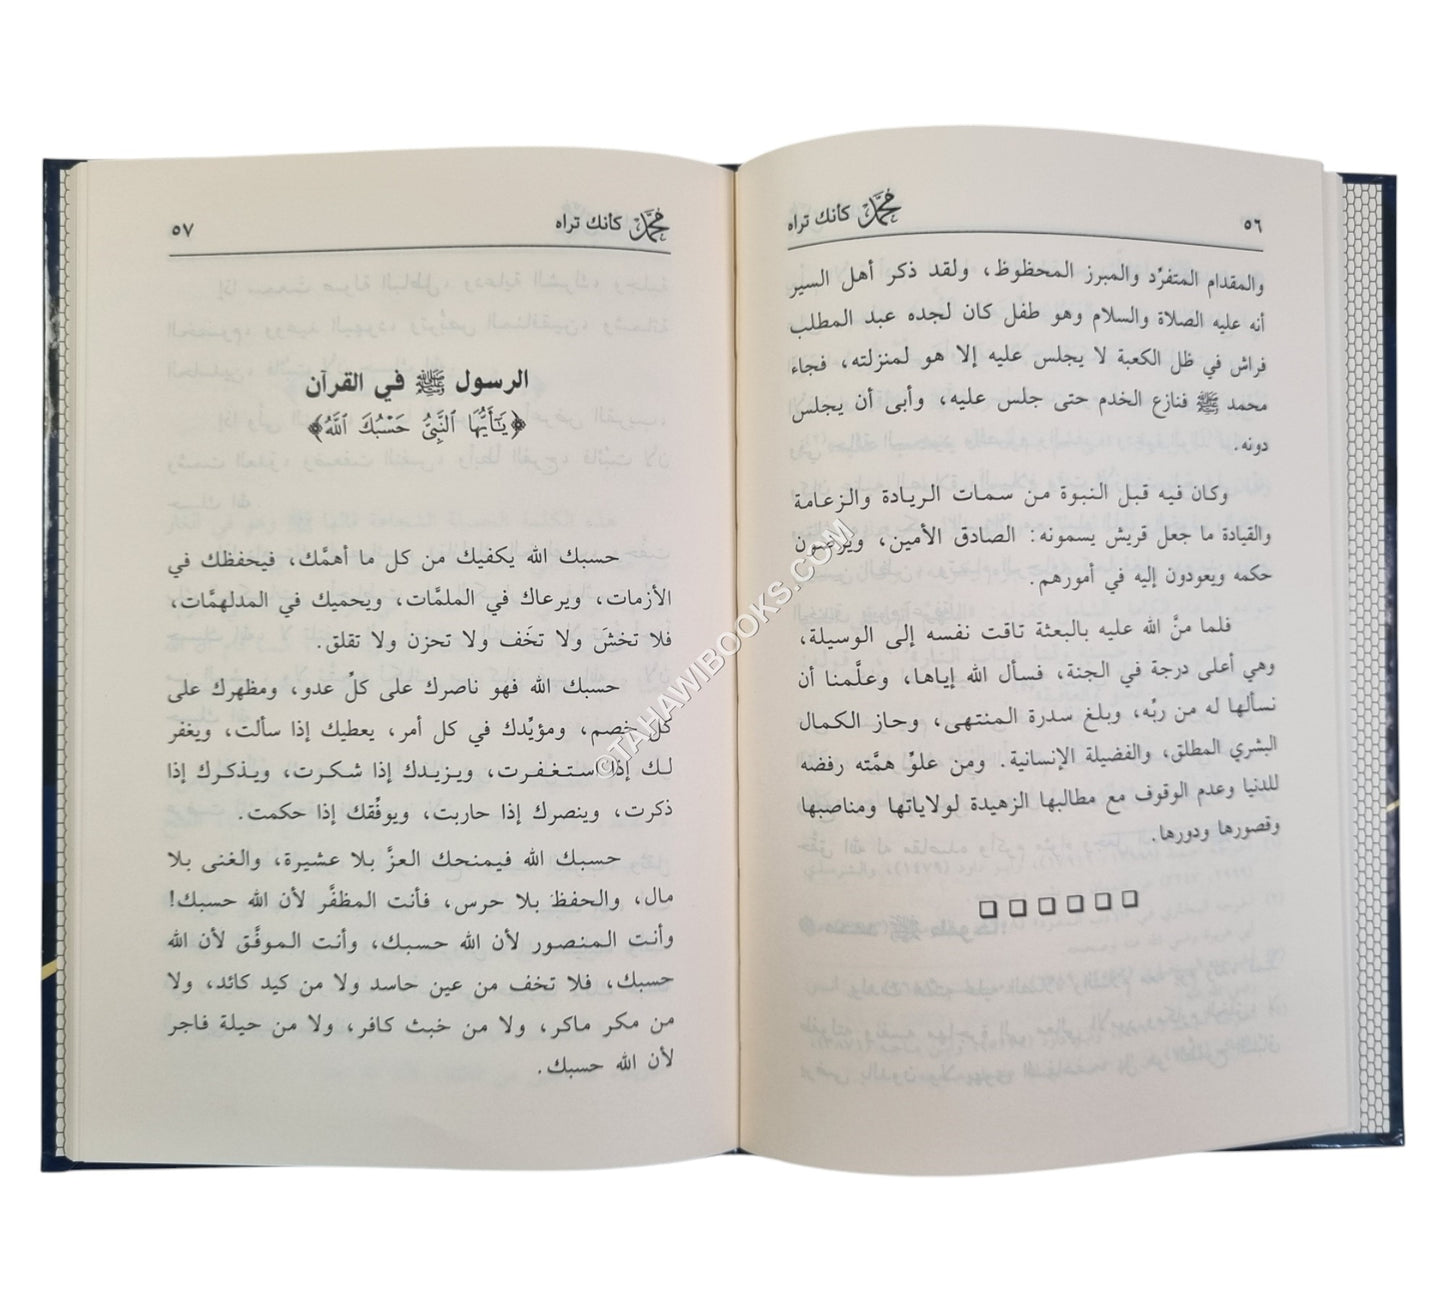 محمد كأنك تراه ٥٦
والمقدام المتفرِّد والمبرز المحظوظ، ولقد ذكر أهل السير
أنه عليه الصلاة والسلام وهو طفل كان لجده عبد المطلب
فراش في ظل الكعبة لا يجلس عليه إلا هو لمنزلته، فجاء
محمد ﷺ فنازع الخدم حتى جلس عليه، وأبى أن يجلس
دونه.
وكان فيه قبل النبوة من سمات الريادة والزعامة
والقيادة ما جعل قريش يسمونه: الصادق الأمين، ويرضون
حكمه ويعودون إليه في أمورهم.
فلما منَّ الله عليه بالبعثة تاقت نفسه إلى الوسيلة،
وهي أعلى درجة في الجنة، فسأل الله إياها، وعلَّمنا أن
نسألها له من ربِّه، وبلغ سدرة المنتهى، وحاز الكمال
البشري المطلق، والفضيلة الإنسانية. ومن علوِّ همَّته رفضه
للدنيا وعدم الوقوف مع مطالبها الزهيدة لولاياتها ومناصبها
وقصورها ودورها.
محمد كأنك تراه ٥٧
الرسول ﷺ في القرآن
﴿يَٰٓأَيُّهَا ٱلنَّبِىُّ حَسْبُكَ ٱللَّهُ﴾
حسبك الله يكفيك من كل ما أهمَّك، فيحفظك في
الأزمات، ويرعاك في الملمَّات، ويحميك في المدلهمَّات،
فلا تخشَ ولا تخَف ولا تحزن ولا تقلق.
حسبك الله فهو ناصرك على كلِّ عدو، ومظهرك على
كل خصم، ومؤيِّدك في كل أمر، يعطيك إذا سألت، ويغفر
لك إذا استغفرت، ويزيدك إذا شكرت، ويذكرك إذا
ذكرت، وينصرك إذا حاربت، ويوفِّقك إذا حكمت.
حسبك الله فيمنحك العزَّ بلا عشيرة، والغنى بلا
مال، والحفظ بلا حرس، فأنت المظفَّر لأن الله حسبك!
وأنت المنصور لأن الله حسبك، وأنت الموفَّق لأن الله
حسبك، فلا تخف من عين حاسد ولا من كيد كائد، ولا
من مكر ماكر، ولا من خبث كافر، ولا من حيلة فاجر
لأن الله حسبك.
©TAHAWIBOOKS.COM